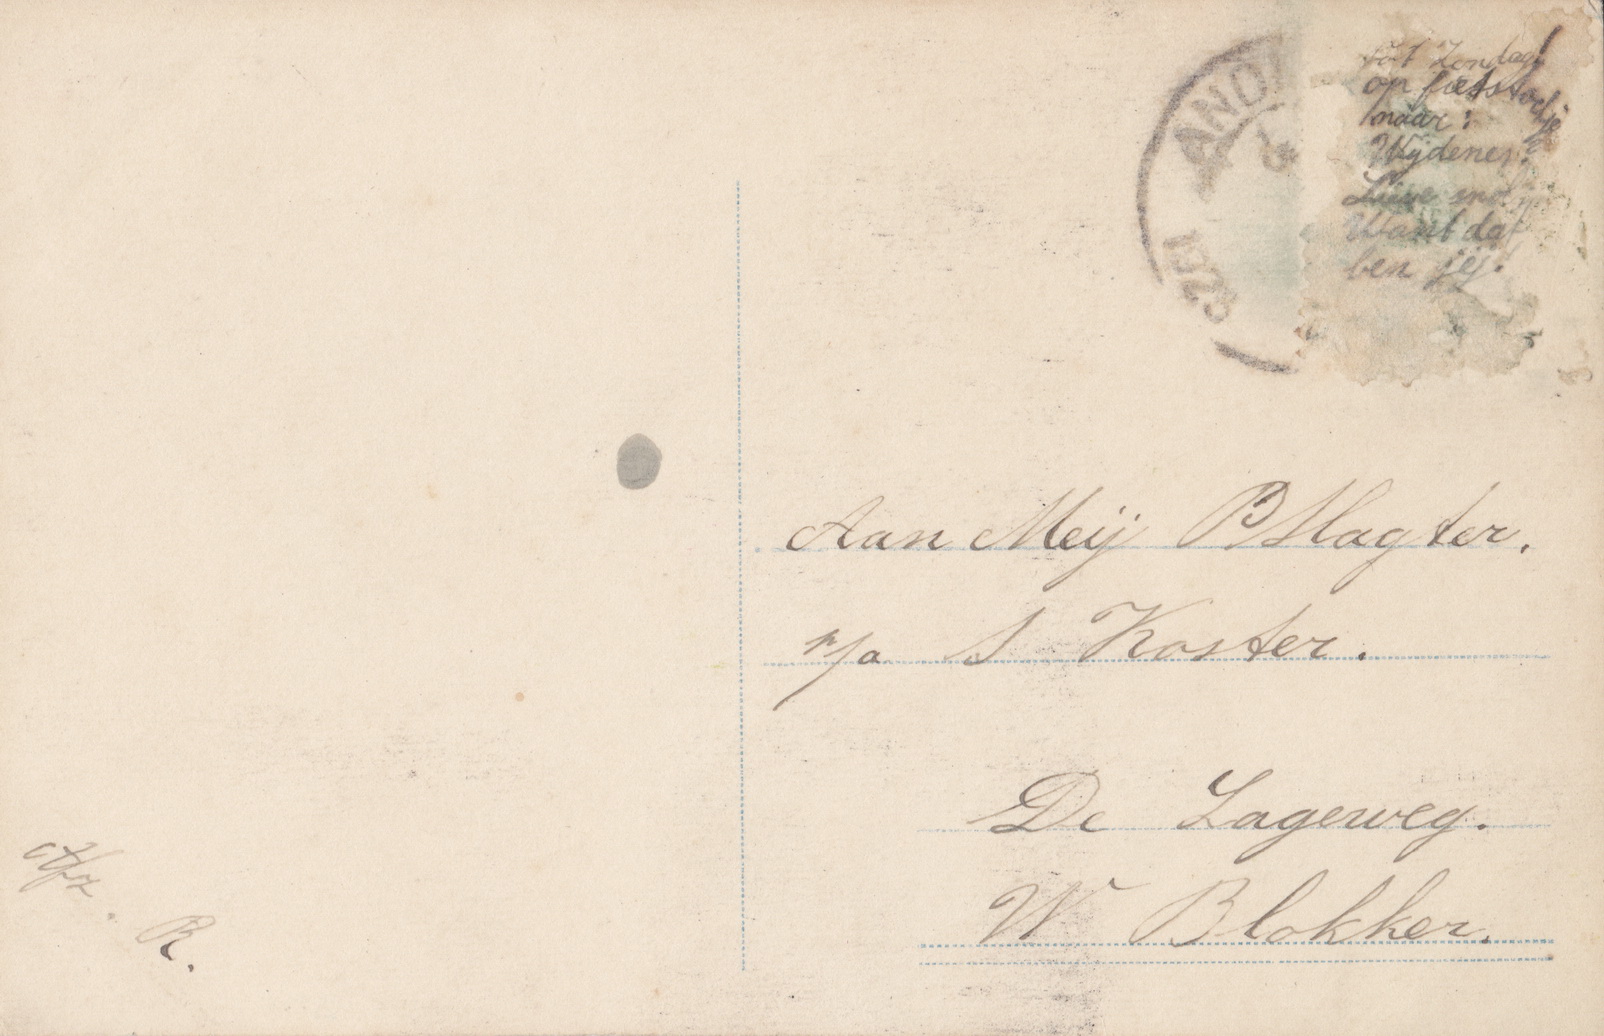 Tot Zondag!
op fietstochtje
naar:
Wijdenes.
Lieve snoly
Want dat
ben jij.
AND
Aan Meij P Slagter.
p/a S Koster.
De Lageweg.
W Blokker.
Afz. R.